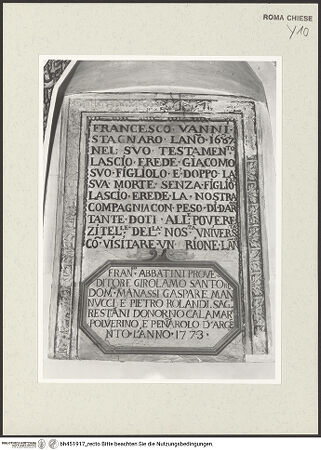 ROMA CHIESE
Y10
FRANCESCO VANNI
STAGNARO LANO 1687
NEL SVO TESTAMENTO
LASCIO EREDE GIACOMO
SVO FIGLIOLO E DOPPO LA
SVA MORTE SENZA FIGLIO
LASCIO EREDE LA NOSTRA
COMPAGNIA CON PESO DI DAR
TANTE DOTI ALLE POVERE
ZITELLE DELLA NOSTRA VNIVERS
CO VISITARE UN RIONE LAN
FRAN ABBATINI PROVE
DITORE GIROLAMO SANTONI
DOM MANASSI GASPARE MAN
NVCCI E PIETRO ROLANDI SAG
RESTANI DONORNO CALAMAR
POLVERINO E PENAROLO D'ARGE
NTO L'ANNO 1773
bh451917_recto Bitte beachten Sie die Nutzungsbedingungen.